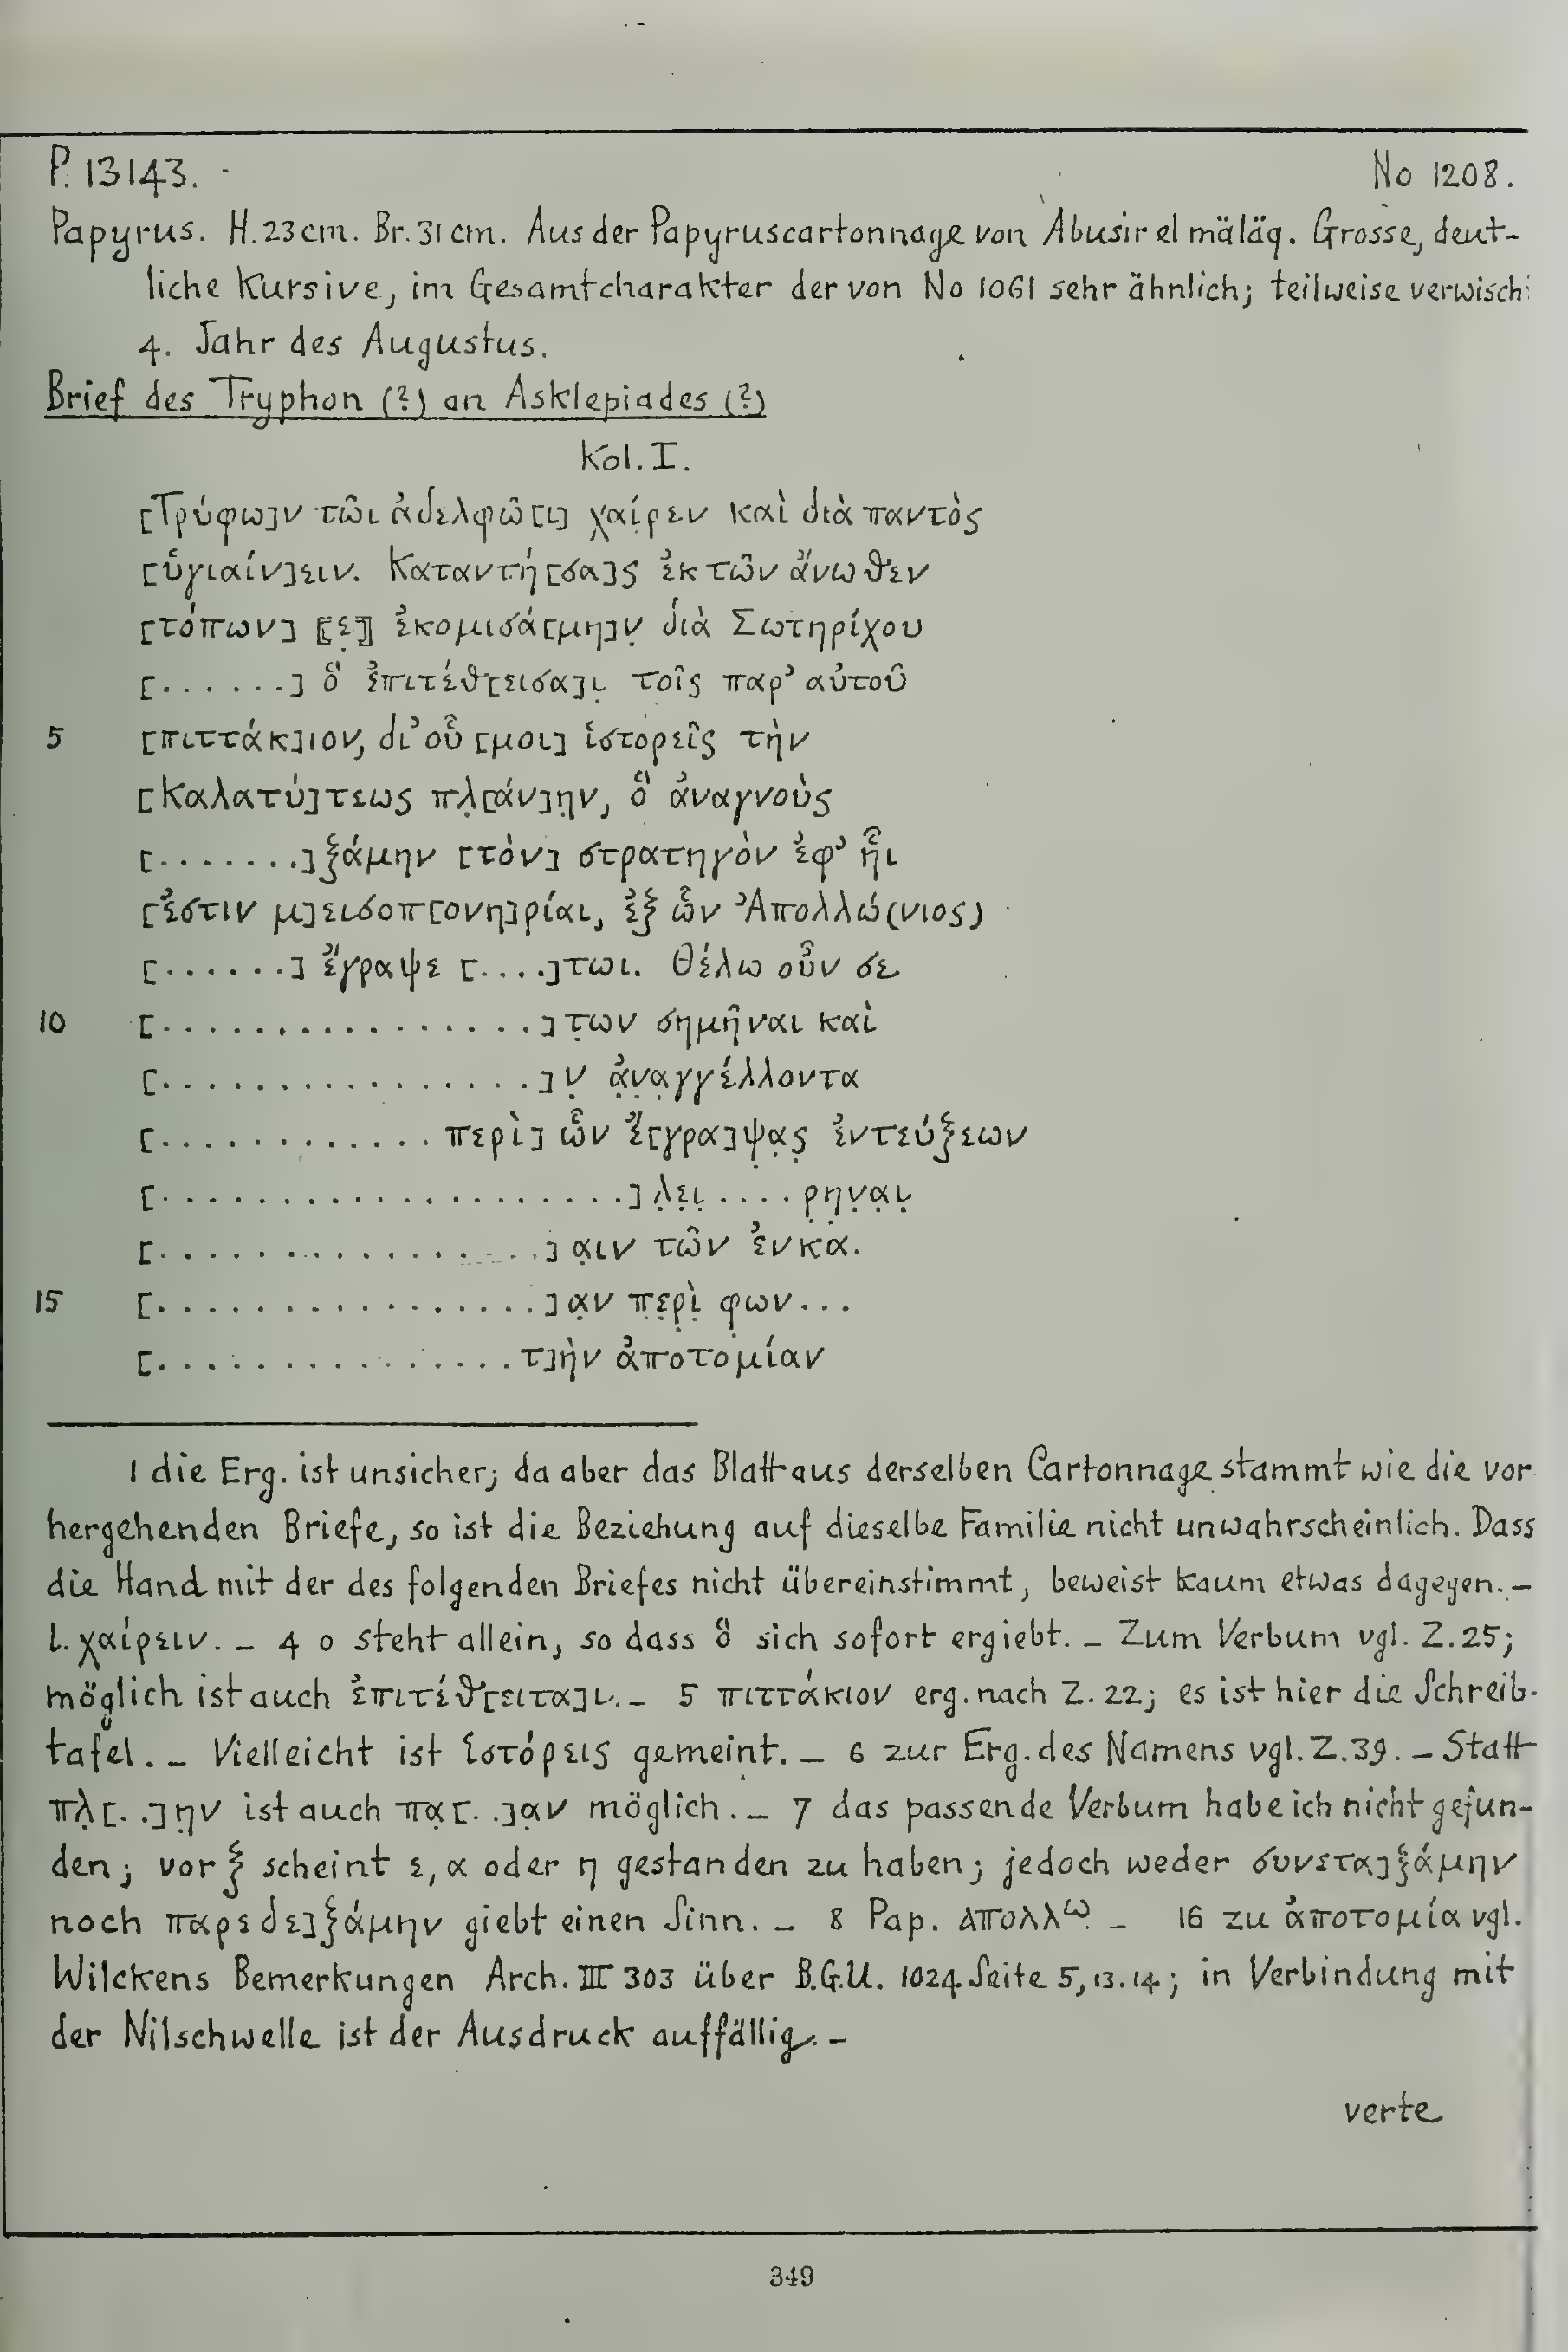 P. 13143. No 1208.
Papyrus. H. 23 cm. Br. 31 cm. Aus der Papyruscartonnage von Abusir el mäläq. Grosse, deut-
liche Kursive, im Gesamtcharakter der von No 1061 sehr ähnlich; teilweise verwisch
4. Jahr des Augustus.
Brief des Tryphon (?) an Asklepiades (?)
Kol. I.
[Τρύφω]ν τῶι ἀδελφῶ[ι] χαί̣ρεν καὶ διὰ παντὸς
[ὑγιαίν]ειν. Καταντή[σα]ς ἐκ τῶν ἄνωθεν
[τόπων] ⟦ε̣⟧ ἐκομισά[μη]ν̣ διὰ Σωτηρίχου
[.......] ὃ ἐπιτέθ[εισα]ι̣ τοῖς παρ' αὐτοῦ
5 [πιττάκ]ιον, δι' οὗ [μοι] ἱστορεῖς τὴν
[Καλατύ]τεως πλ̣[άν]η̣ν, ὃ ἀναγνοὺς
[........]ξάμην [τὸν] στρατηγὸν ἐφ' ἧι
[ἐστιν μ]εισοπ[ονη]ρίαι, ἐξ ὧν Ἀπολλώ(νιος)
[.......] ἔγραψε [....]τωι. Θέλω οὖν σε
10 [................]τ̣ων σημῆναι καὶ
[................]ν̣ ἀ̣ν̣α̣γγέλλοντα
[............ περὶ] ὧν ἔ[γρα]ψ̣α̣ς̣ ἐντεύξεων
[....................]λ̣ε̣ι̣ .... ρ̣η̣ν̣α̣ι̣
[.................]α̣ιν τῶν ἐνκα.
15 [................]α̣ν π̣ε̣ρ̣ὶ̣ φων...
[............... τ]ὴν ἀποτομίαν
1 die Erg. ist unsicher; da aber das Blatt aus derselben Cartonnage stammt wie die vor
hergehenden Briefe, so ist die Beziehung auf dieselbe Familie nicht unwahrscheinlich. Dass
die Hand mit der des folgenden Briefes nicht übereinstimmt, beweist kaum etwas dagegen. –
l. χαίρειν. – 4 ο steht allein, so dass ὃ sich sofort ergiebt. – Zum Verbum vgl. Z. 25;
möglich ist auch ἐπιτέθ[ειτα]ι. – 5 πιττάκιον erg. nach Z. 22; es ist hier die Schreib-
tafel. – Vielleicht ist ἱστόρεις gemeint. – 6 zur Erg. des Namens vgl. Z. 39. – Statt
πλ̣[..]η̣ν ist auch πα̣[..]α̣ν möglich. – 7 das passende Verbum habe ich nicht gefun-
den; vor ξ scheint ε, α oder η gestanden zu haben; jedoch weder συνετα]ξάμην
noch παρεδε]ξάμην giebt einen Sinn. – 8 Pap. απολλω – 16 zu ἀποτομία vgl.
Wilckens Bemerkungen Arch. III 303 über B.G.U. 1024 Seite 5, 13. 14; in Verbindung mit
der Nilschwelle ist der Ausdruck auffällig. –
verte
349